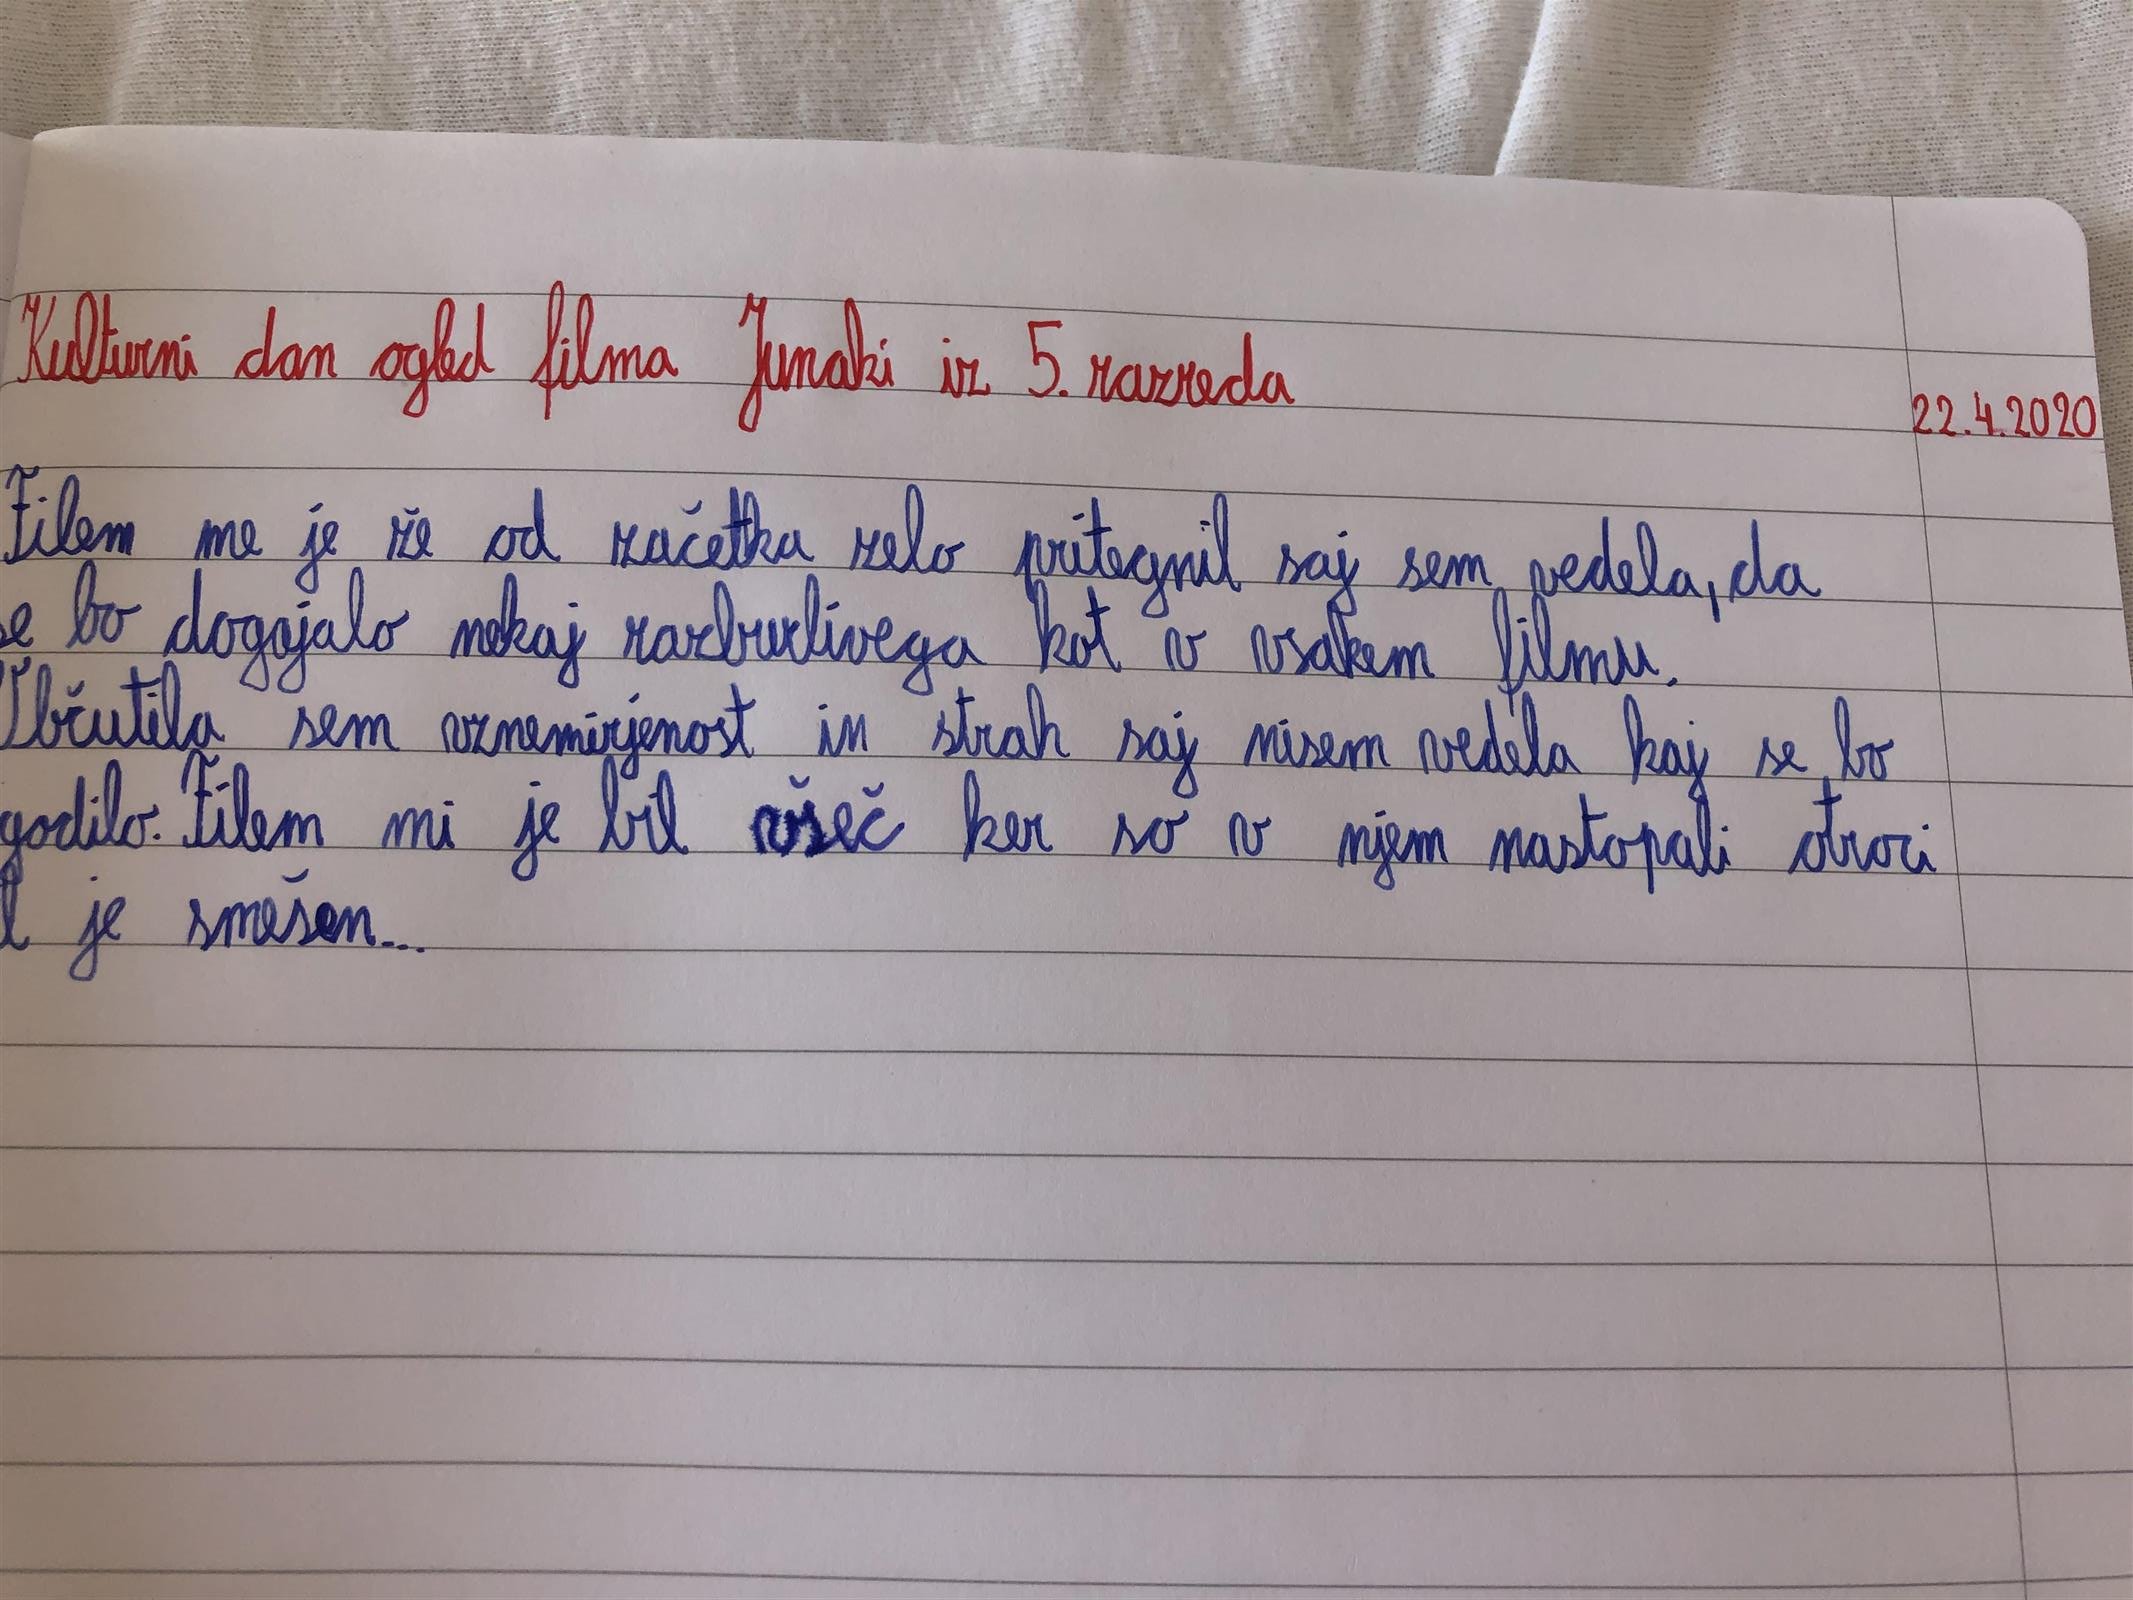 Kulturni dan ogled filma Junaki iz 5. razreda
22.4.2020
Filem me je že od začetka zelo pritegnil saj sem vedela, da
se bo dogajalo nekaj razburlivega kot v vsakem filmu.
Občutila sem vznemirjenost in strah saj nisem vedela kaj se bo
godilo. Filem mi je bil všeč ker so v njem nastopali otroci
je smešen...